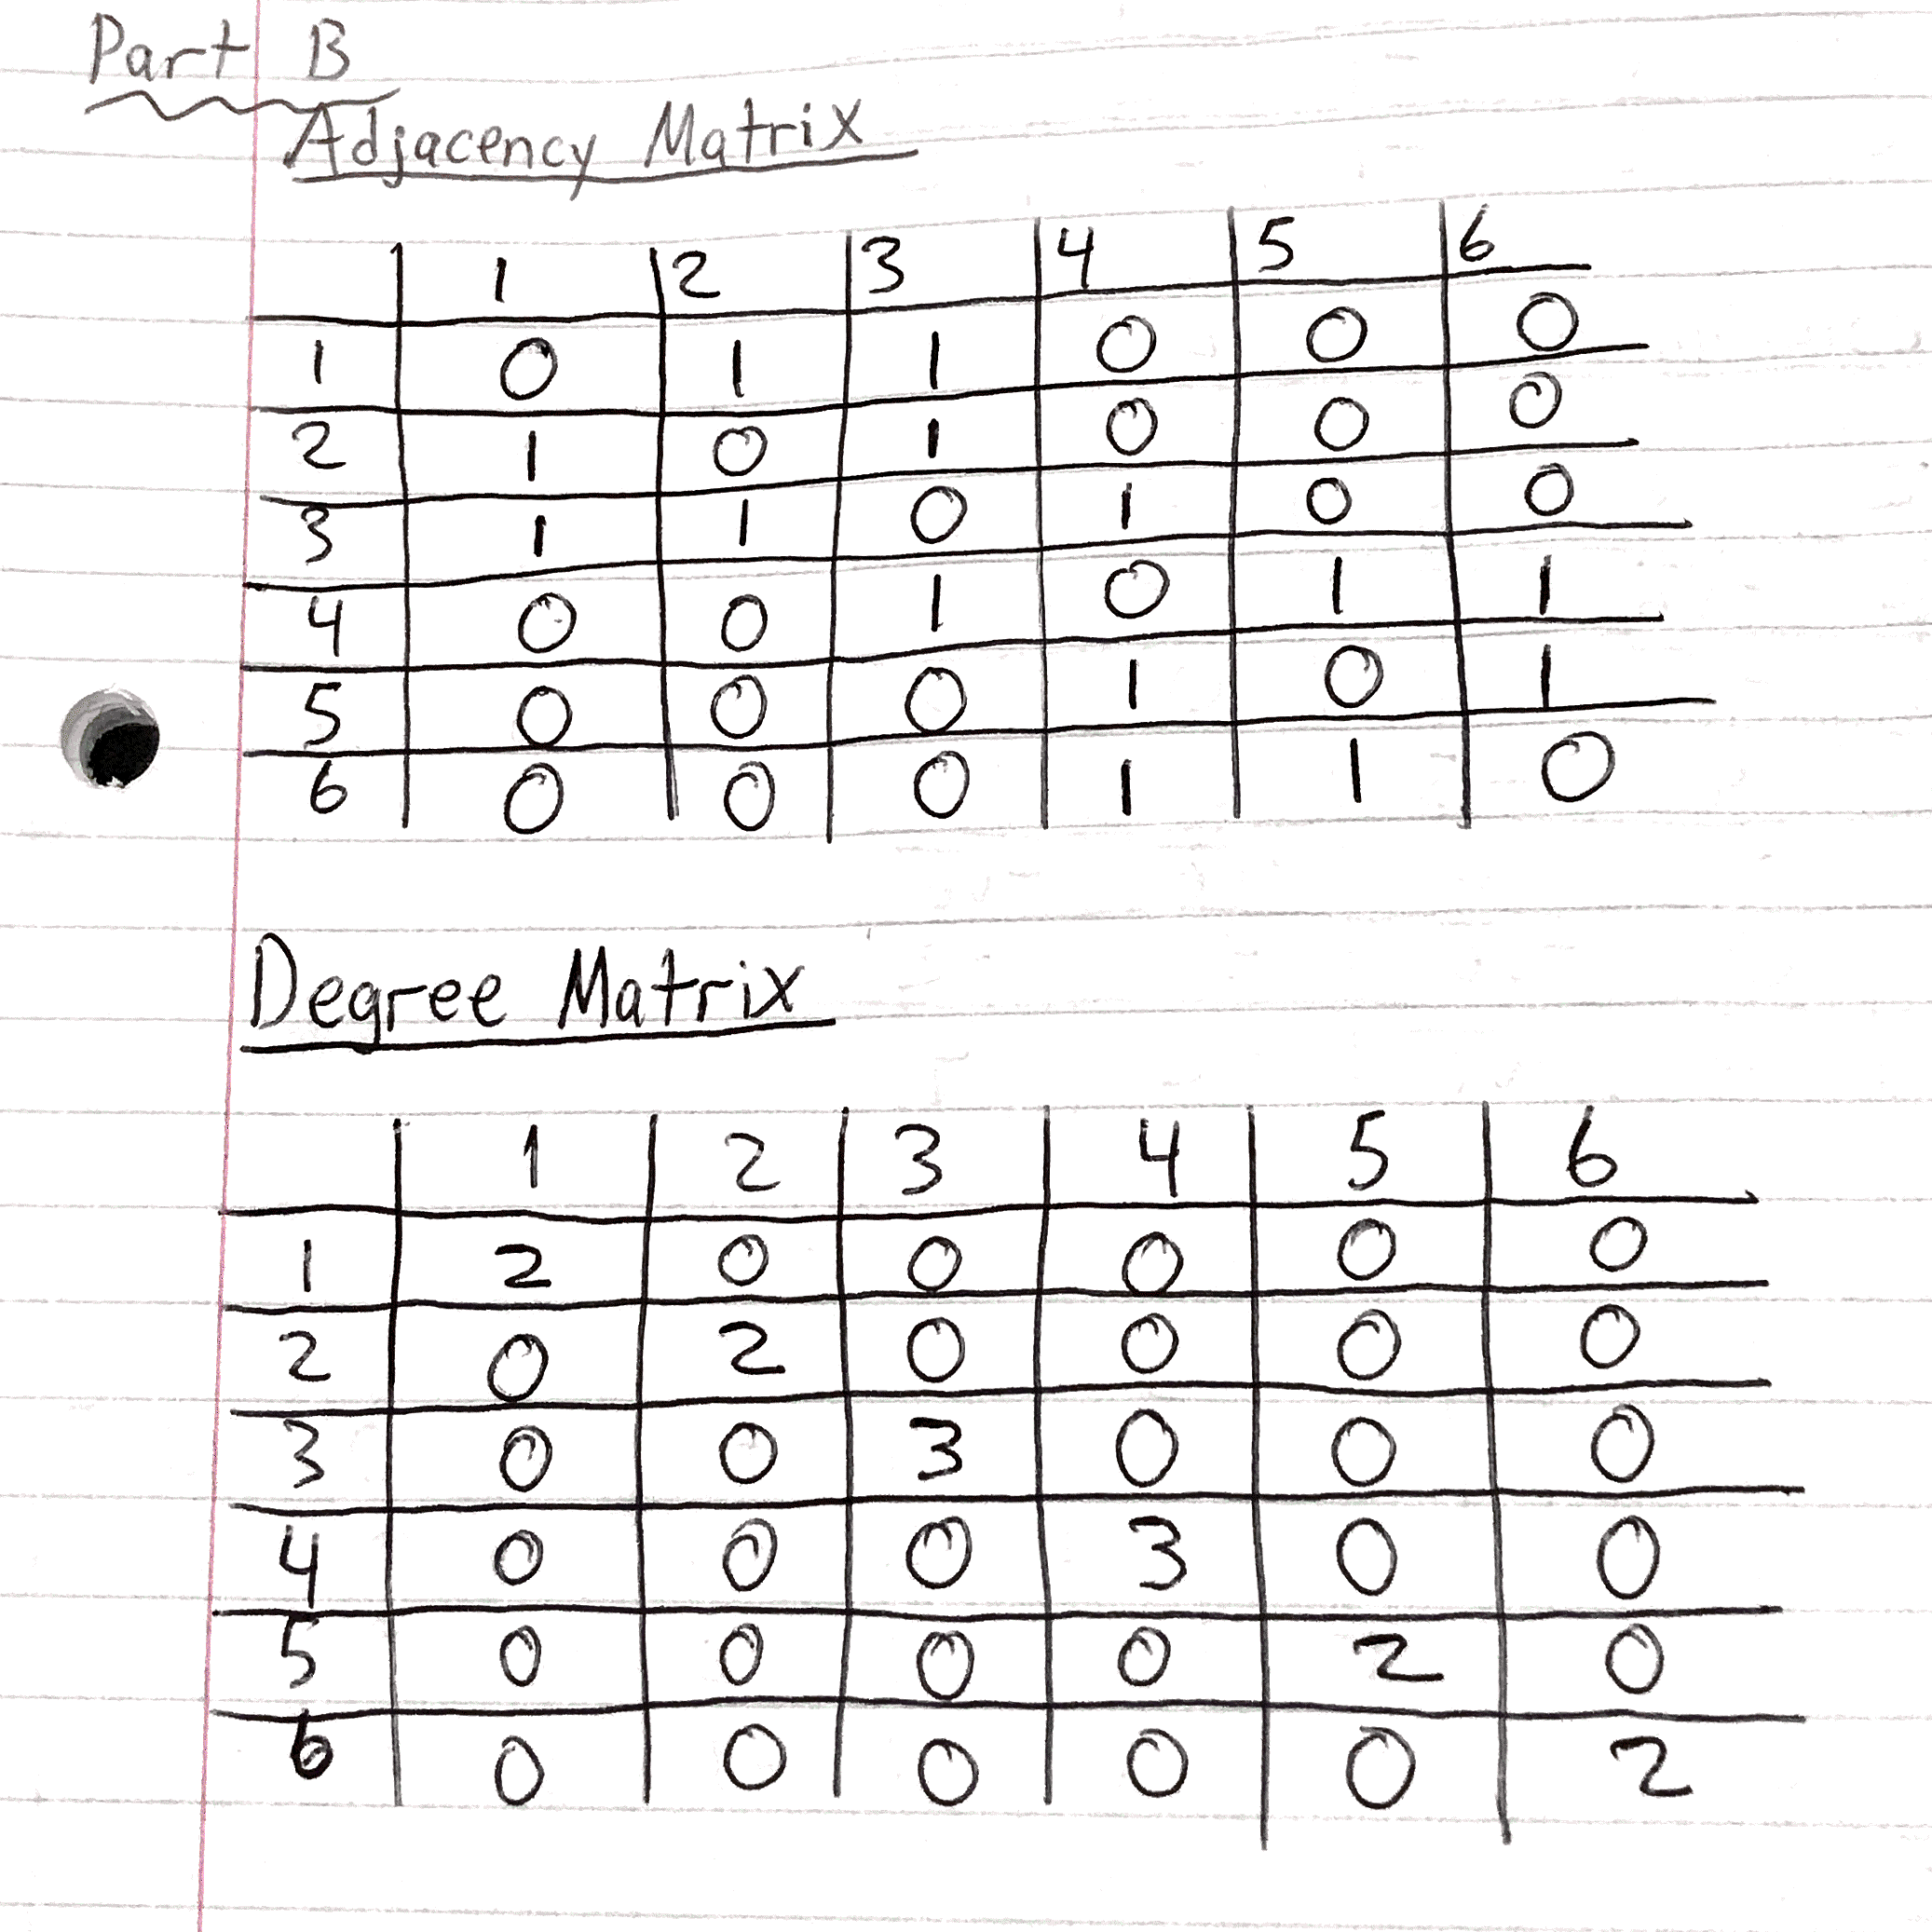 Part B
Adjacency Matrix
1 2 3 4 5 6
1 0 1 1 0 0 0
2 1 0 1 0 0 0
3 1 1 0 1 0 0
4 0 0 1 0 1 1
5 0 0 0 1 0 1
6 0 0 0 1 1 0
Degree Matrix
1 2 3 4 5 6
1 2 0 0 0 0 0
2 0 2 0 0 0 0
3 0 0 3 0 0 0
4 0 0 0 3 0 0
5 0 0 0 0 2 0
6 0 0 0 0 0 2